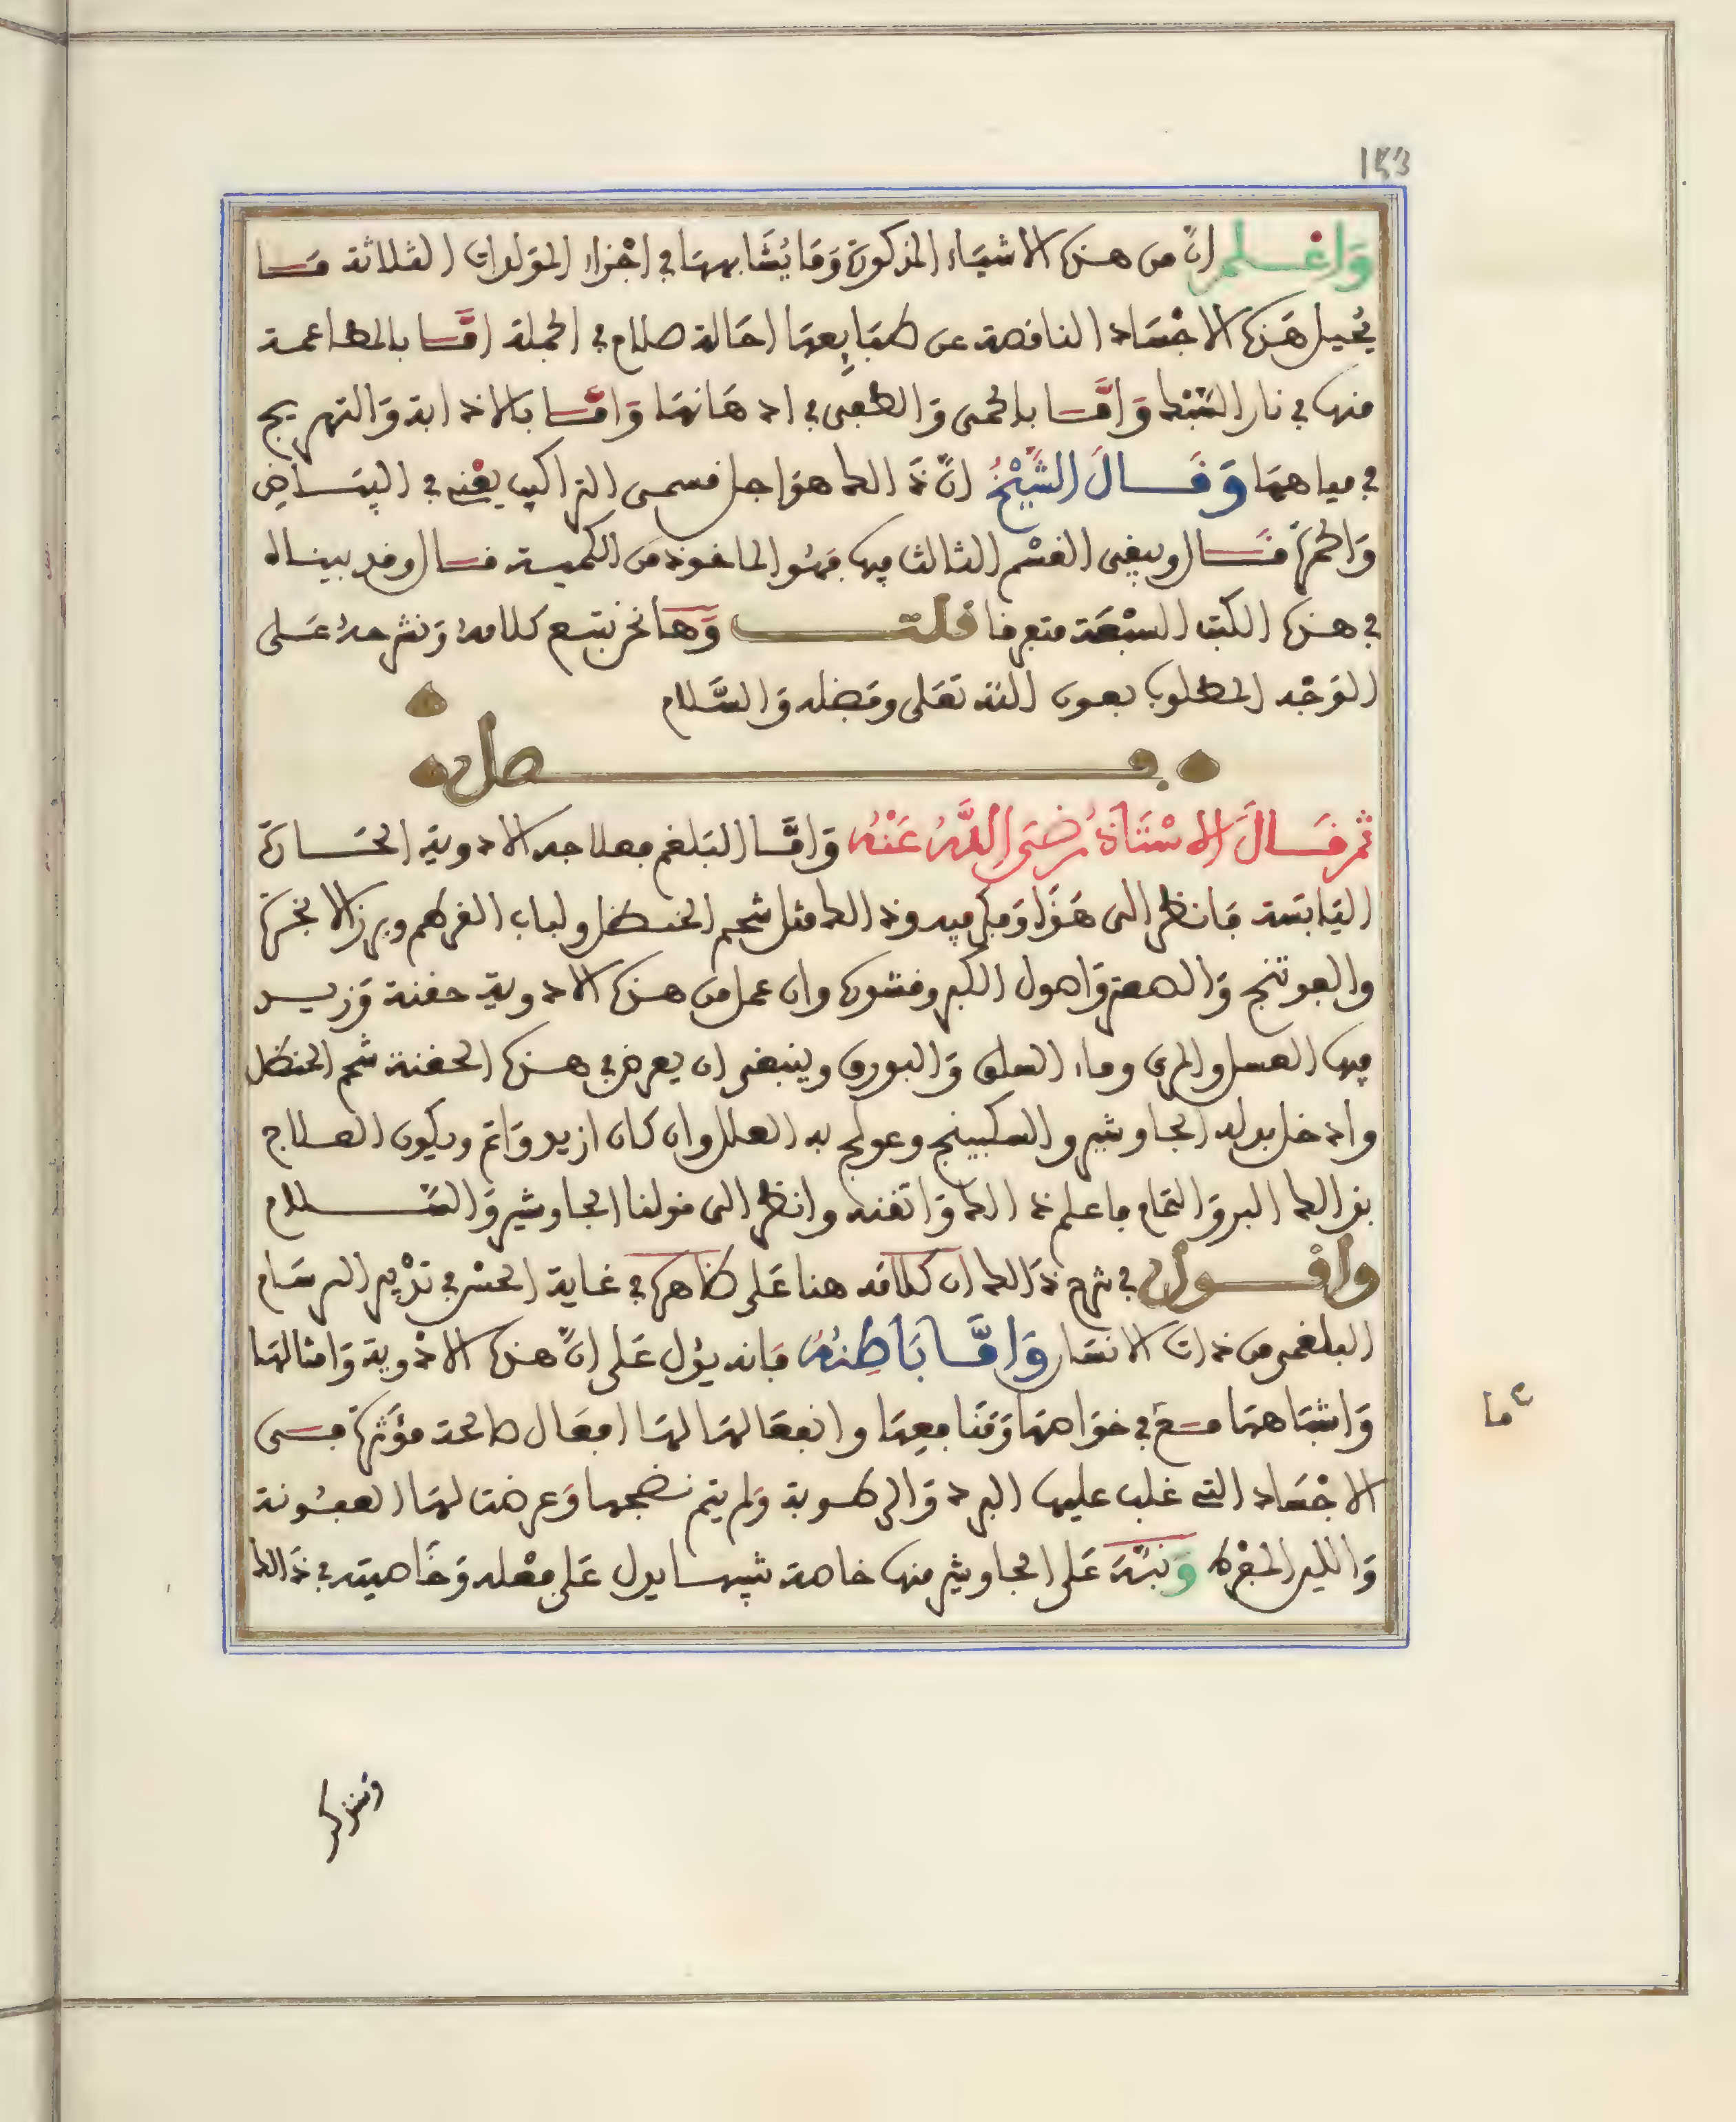 153
وَاعْلم انّ من هذه الاشيَاء المذكورة وَمَا يُشَابههَا في اجْزاء المَولدات الثلاثة مَا
يُحيل هَذه الاجْسَاد الناقصة عن طبَايِعهَا احَالة صلاح في الجملة امَّا بالمطاعمة
منها في نار السَّبْك وَامَّا بالحمى وَالطفى في ادهَانهَا وَامَّا بالاذابة وَالتهريج
في مياههَا وَقَالَ الشَّيْخُ انّ ذَالك هوَ اجل قسمى التراكيب يعْنى في البيَاض
وَالحمرَة قَال ويبقى القسْم الثالث فيها فهُو الماخوذ من الكمية قال وقد بيناه
في هذه الكتب السبْعَة متفرقا قلت وَهَا نحن نتبع كلامهُ وَنشرحهُ عَلى
الوَجْه المطلوب بعون الله تعَلى وفَضله وَالسَّلام
فصل
ثم قَالَ الاسْتَاذُ رَضىَ اللَّهُ عَنْهُ وَامَّا البَلغم فعلاجه الادوية الحَارة
اليَابسَة فانظر الى هَذَا وَفكر فيه وذالك مثل شحم الحنظل ولباب القرطم وبزر الانجرَة
والفوتنج وَالصعتر وَاصول الكبر وقشوره وان عمل من هذه الادوية حقنة وَزيد
فيها العسل والمرى وماء السلق وَالبورق وينبغى ان يعرض في هذه الحقنة شحم الحنظل
وادخل بدله الجاوشير والسكبينج وعولج به العلل وان كان ازيد وَاتم ويكون العلاج
بذالك البر وَالتمام فاعلم ذالك وَاتقنه وانظر الى قولنا الجاوشير وَالسَّلام
وأقْول في شرح ذَالك ان كلامَه هنا عَلى ظاهره في غاية الحسْن في تدْبير البرسَام
البلغمى من ذات الانسَان وَامَّا بَاطِنهُ فَانه يؤل عَلى انّ هذه الادْوية وَامثالهَا
وَاشبَاههَا مع في خوَاصهَا وَمَنَافعِهَا وانفعَالهَا لهَا افعَال صالحة مؤثرة في
الاجْسَاد التى غلب عليها البرد وَالرطوبة وَلم يتم نضجها وَعرضت لهَا العفُونة
وَاللين المفْرط وَنبَّهَ عَلى الجاوشير منها خاصة تنبيها يدل عَلى فعْله وَخَاصيته في ذَالك
ما
ونذكر